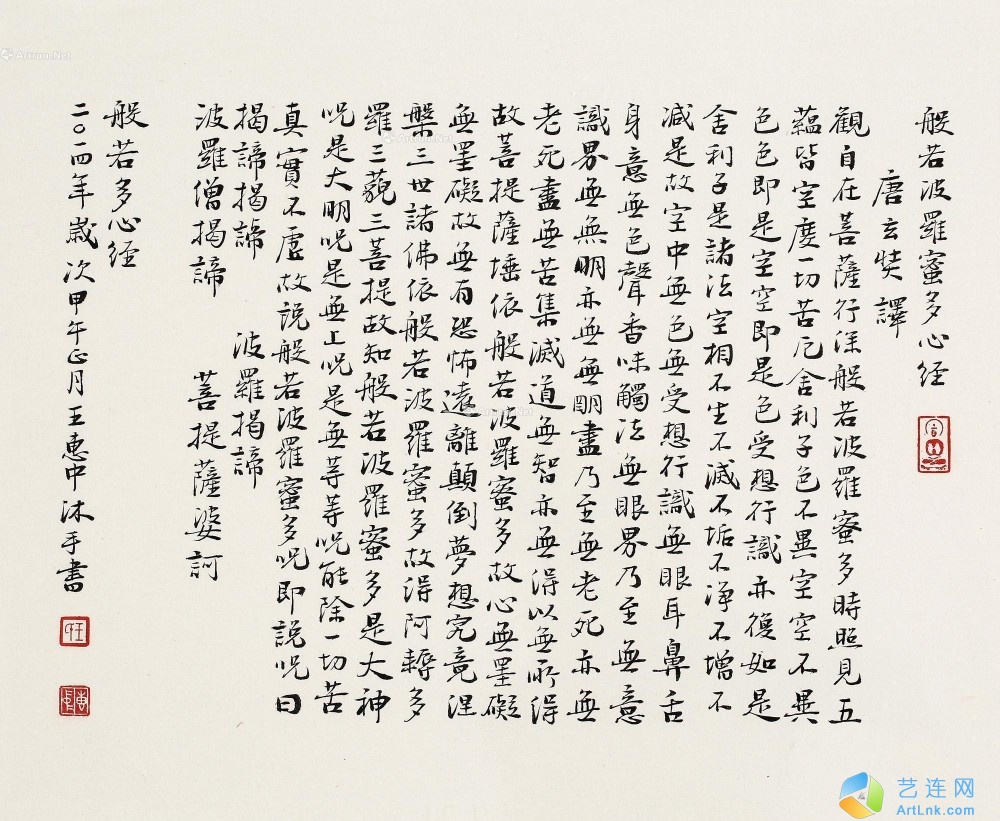 般若波羅蜜多心経
唐玄奘譯
觀自在菩薩行深般若波羅蜜多時照見五
蘊皆空度一切苦厄舍利子色不異空空不異
色色即是空空即是色受想行識亦復如是
舍利子是諸法空相不生不滅不垢不淨不增不
減是故空中無色無受想行識無眼耳鼻舌
身意無色聲香味觸法無眼界乃至無意
識界無無明亦無無明盡乃至無老死亦無
老死盡無苦集滅道無智亦無得以無所得
故菩提薩埵依般若波羅蜜多故心無罣礙
無罣礙故無有恐怖遠離顛倒夢想究竟涅
槃三世諸佛依般若波羅蜜多故得阿耨多
羅三藐三菩提故知般若波羅蜜多是大神
呪是大明呪是無上呪是無等等呪能除一切苦
真實不虛故說般若波羅蜜多呪即說呪曰
揭諦揭諦 波羅揭諦
波羅僧揭諦 菩提薩婆訶
般若多心経
二〇一四年歲次甲午正月王惠中沐手書
艺连网
ArtLnk.com